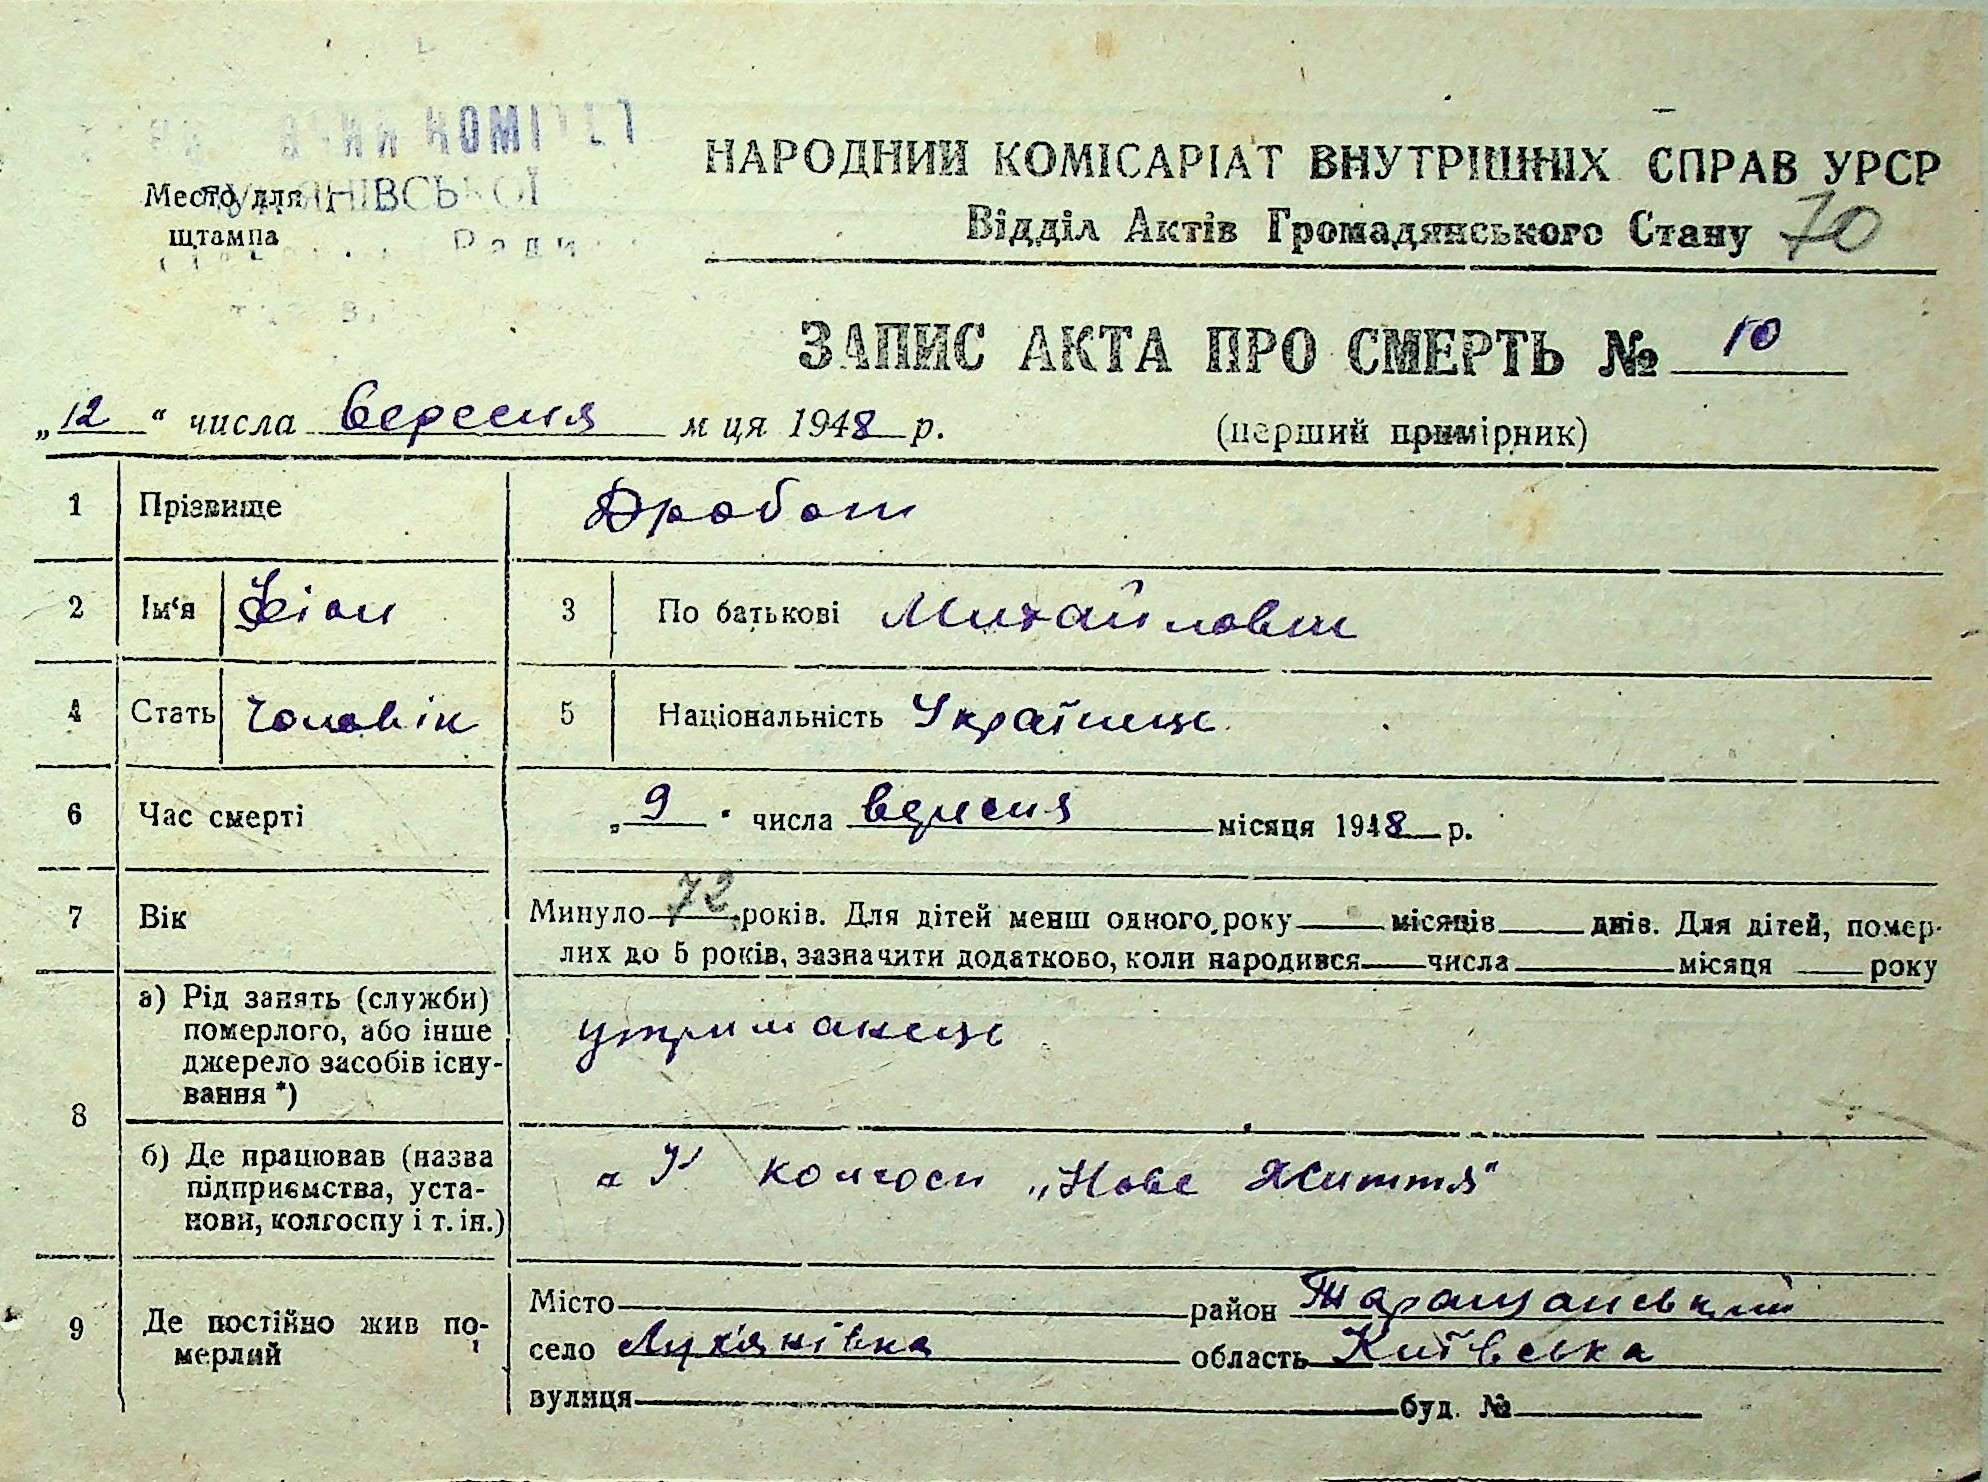 КОМІТЕТ
Место для
штампа
НАРОДНИЙ КОМІСАРІАТ ВНУТРІШНІХ СПРАВ УРСР
Відділ Актів Громадянського Стану 70
ЗАПИС АКТА ПРО СМЕРТЬ № 10
„12“ числа вересня м ця 1948 р. (перший примірник)
1 Прізвище Дробот
2 Ім‘я Фіон 3 По батькові Михайлович
4 Стать чоловік 5 Національність Українець
6 Час смерті „9“ числа вересня місяця 1948 р.
7 Вік Минуло 72 років. Для дітей менш одного року місяців днів. Для дітей, помер-
лих до 5 років, зазначити додатково, коли народився числа місяця року
8 а) Рід занять (служби)
померлого, або інше
джерело засобів існу-
вання *)
утриманець
б) Де працював (назва
підприємства, уста-
нови, колгоспу і т. ін.)
колгосп „Нове Життя“
9 Де постійно жив по-
мерлий
Місто район Таращанський
село Лук'янівка область Київська
вулиця буд. №